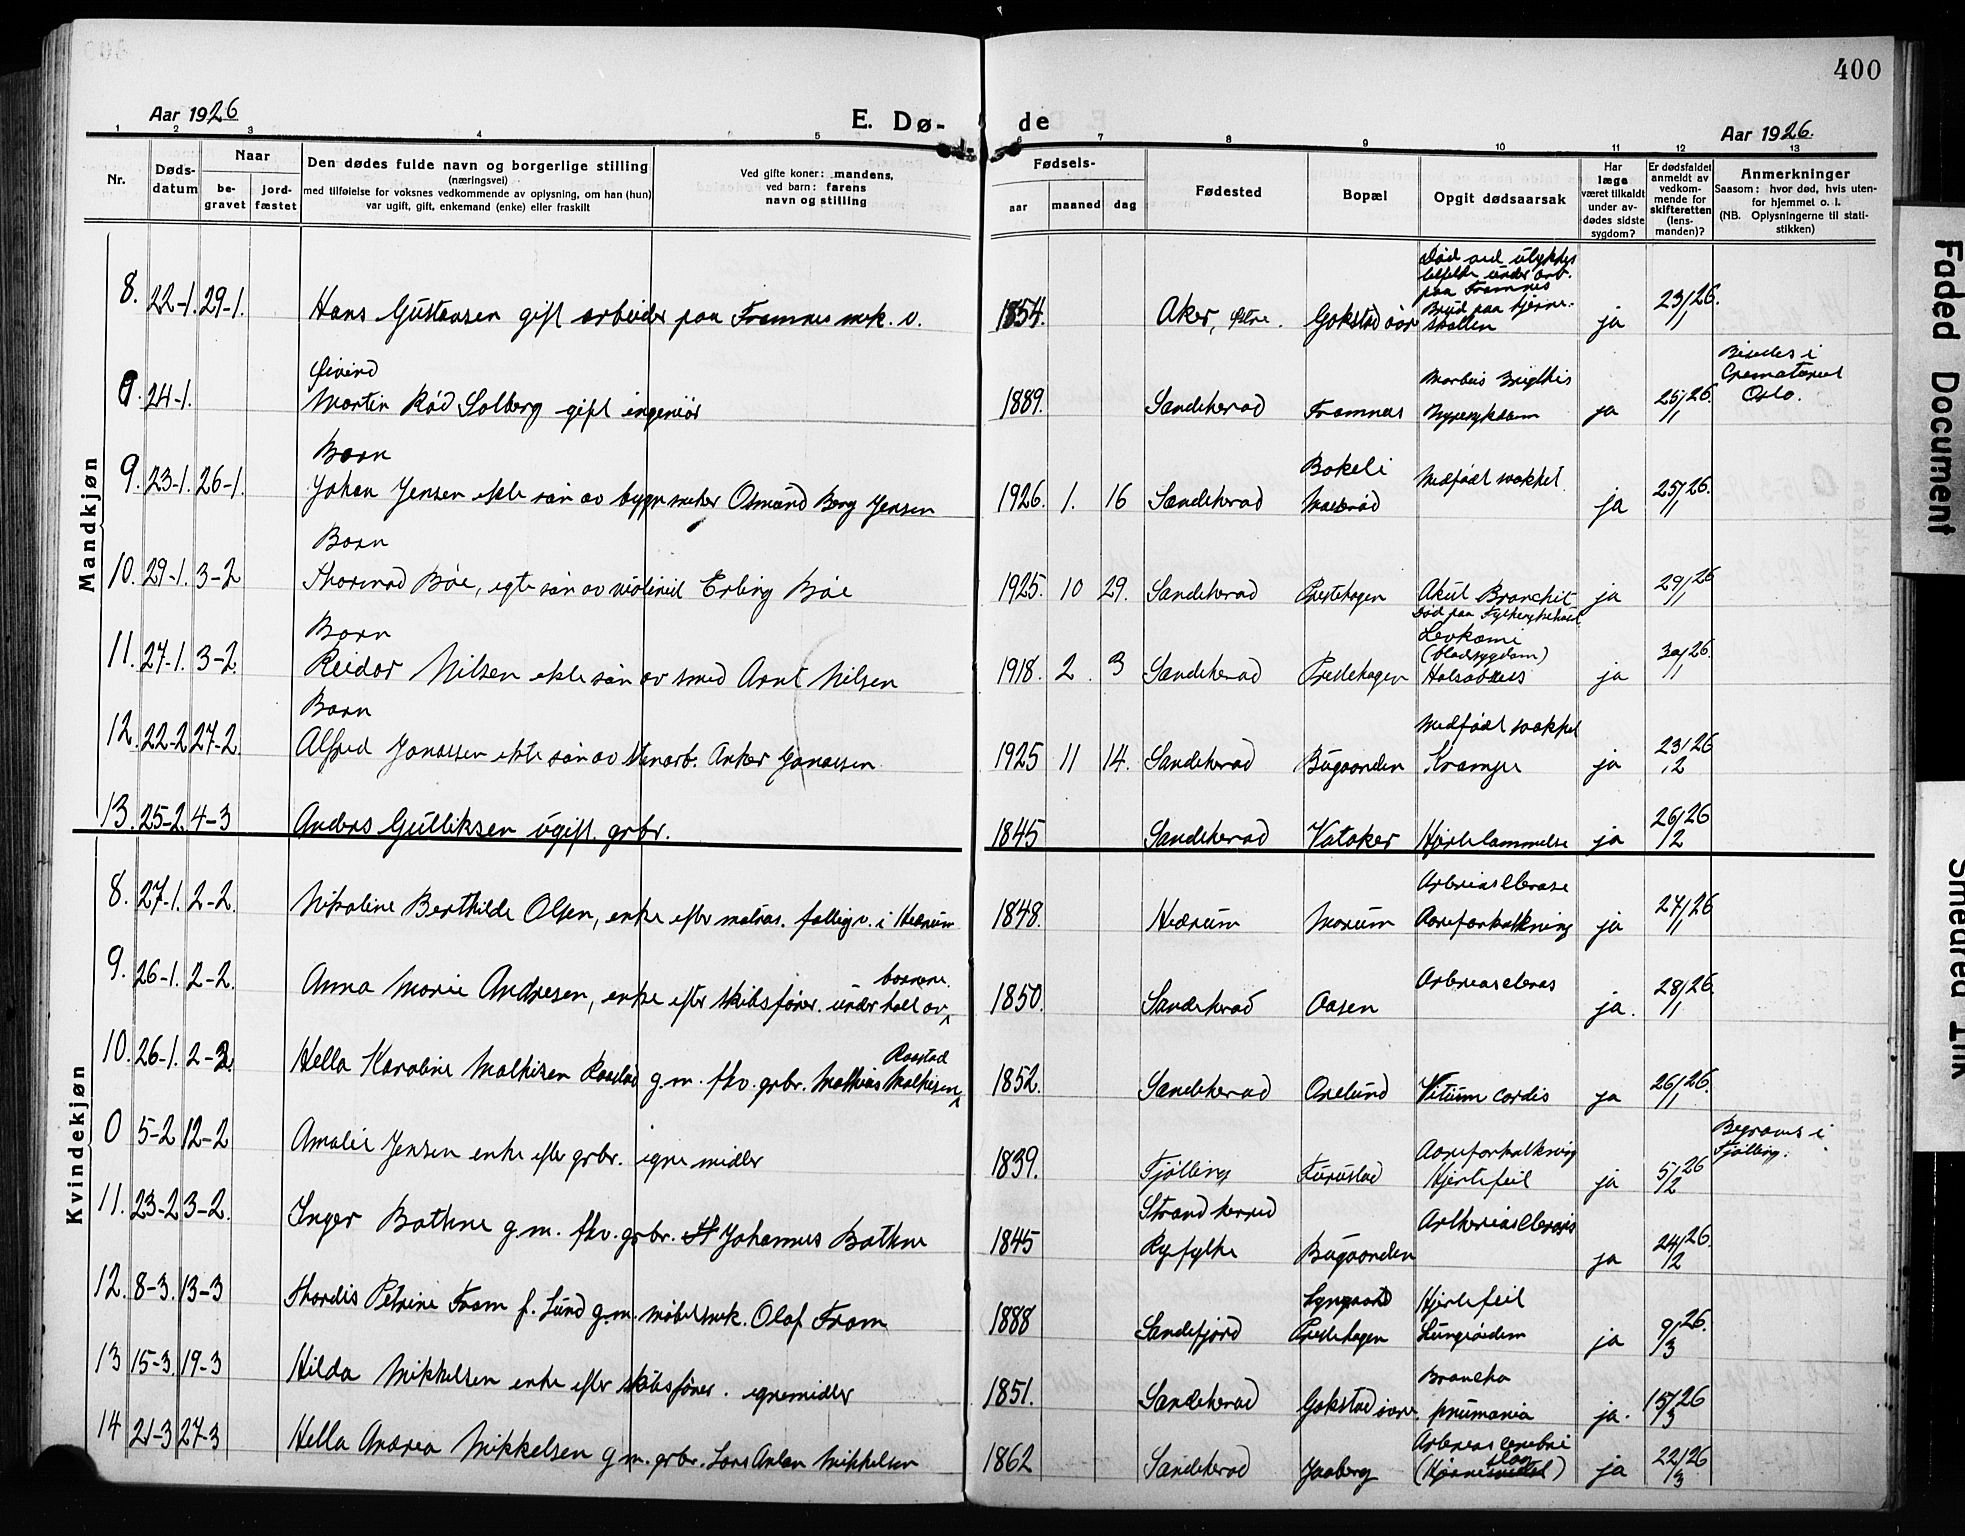 400
Aar 1926
E. Dø-
de
Aar 1926.
1 2 3 4 5 6 7 8 9 10 11 12 13
Nr.
Døds-
datum
Naar
be-
gravet
jord-
fæstet
Den dødes fulde navn og borgerlige stilling
(næringsvei)
med tilføielse for voksnes vedkommende av oplysning, om han (hun)
var ugift, gift, enkemand (enke) eller fraskilt
Ved gifte koner: mandens,
ved barn: farens
navn og stilling
Fødsels-
aar maaned dag
Fødested
Bopæl
Opgit dødsaarsak
Har
læge
været tilkaldt
under av-
dødes sidste
sygdom?
Er dødsfaldet
anmeldt av
vedkom-
mende for
skifteretten
(lens-
manden)?
Anmerkninger
Saasom: hvor død, hvis uten-
for hjemmet o. l.
(NB. Oplysningerne til stati-
stikken)
Mandkjøn
8. 22-1. 29-1. Hans Gustavsen gift arbeider paa Framnes mek. v. 1854. Aker, østre. Gokstad ja 23/1 26.
Død ved ulykkes
tilfælde under arb.
paa Framnes
Brud paa hjerne-
skallen
Øivind
24-1. Martin Rød Solberg gift ingeniør 1889. Sandeherad Framnes ja 25/1 26.
Morbus Brigthis
Nyresykdom
Bisættes i
Crematoriet
Oslo.
Barn
9. 23-1. 26-1. Johan Jensen ekte søn av bygn. Osmund Berg Jensen 1926. 1. 16 Sandeherad Bokeli Medfødt svakhet ja 25/1 26.
Barn
10. 29-1. 3-2 Thormod Bøe, egte søn av Erling Bøe 1925. 10 29. Sandeherad Prestehagen Akut Bronchit ja 29/1 26
Barn
11. 27-1. 3-2. Reidar Nilsen ekte søn av smed Arnt Nilsen 1918. 2. 3 Sandeherad Prestehagen ja 30/1 26.
død paa Fylkessykehuset
Levkæmi
(blodsygdom)
Halsabsess
Barn
12. 22-2 27-2. Alfred Jonassen ekte søn av stenarb. Anker Jonassen 1925 11 14. Sandeherad Bugaarden ja 23/2 26
Medfødt svakhet
Krampe
13. 25-2. 4-3 Anders Gulliksen ugift grbr. 1845 Sandeherad Vataker Hjertelammelse ja 26/2 26
Kvindekjøn
8. 27-1. 2-2. Nikoline Berthilde Olsen, enke efter matros. fattigv. i Hedrum 1848. Hedrum Morum ja 27/1 26
Aareforkalkning
9. 26-1. 2-2. Anna Marie Andresen, enke efter skibsfører. underholt av barnene. 1850. Sandeherad Aasen ja. 28/1 26.
10. 26-1. 2-2 Hella Karoline Mathisen Raastad g.m. fhv. grbr. Mathias Mathisen Raastad 1852. Sandeherad Oxelund Vitium cordis ja 26/1 26.
0 5-2 12-2 Amalie Jensen enke efter grbr. egne midler 1839. Fjølling Furustad ja 5/2 26
Aareforkalkning
Hjertefeil
Begraves i
Tjølling.
11. 23-2 3-2. Inger Bathne g.m. fhv. grbr. Johannes Bathne 1845 Bugaarden ja 24/2 26.
Strand herred
Ryfylke
12. 8-3. 13-3 Thordis Petrine Fram f. Lund g.m. møbelsnek. Olaf Fram 1888 Sandefjord ja 9/3 26.
Lyngaard
Prestehagen
Hjertefeil
Lungeødem
13 15-3. 19-3 Hilda Mikkelsen enke efter skibsfører. egne midler 1851. Sandeherad Gokstad ja. 15/3 26
Broncho
pnumonia
14 21-3 27-3 Hella Andrea Mikkelsen g.m. grbr. Lars Anton Mikkelsen 1862 Sandeherad Jaaberg ja 22/3 26
Faded Document
Smeared Ink